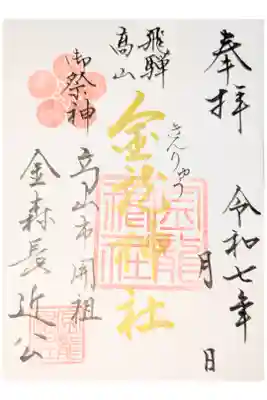 奉拝
令和七年 月 日
飛騨
高山
金龍神社
きんりゅう
御祭神
高山市開祖
金森長近公